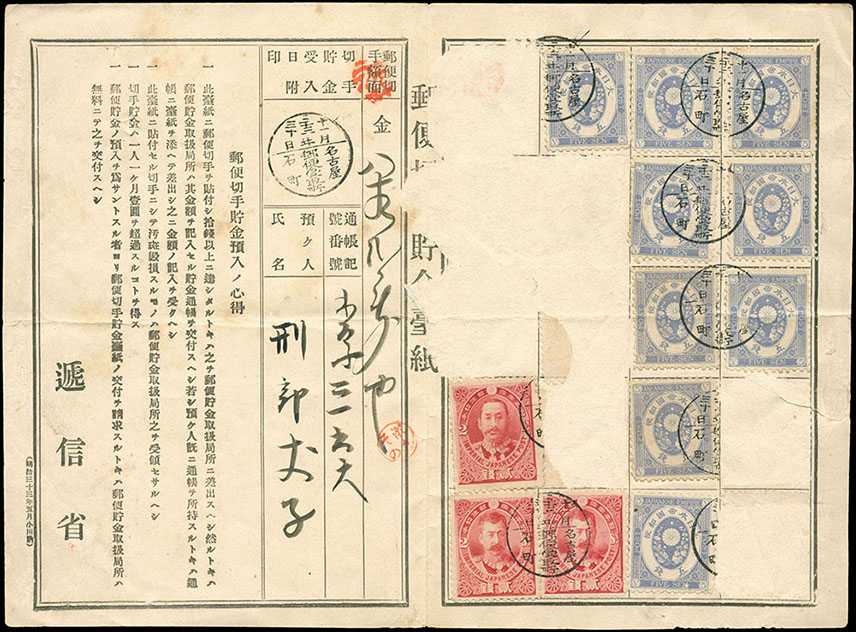 郵便切手貯金臺紙
郵便切手額面
金
切手貯金受入日附印
十一月名古屋
三十三年郵便電信縣
三十日石町
通帳記號番號
預ケ人氏名
刑部丈子
郵便切手貯金預入ノ心得
一 此臺紙ニ郵便切手ヲ貼付シ拾錢以上ニ達シタルトキハ之ヲ郵便貯金取扱局所ニ差出スヘシ然ルトキハ
郵便貯金取扱局所ハ其金額ヲ記入セル貯金通帳ヲ交付スヘシ若シ預ケ人既ニ通帳ヲ所持スルトキハ通
帳ニ臺紙ヲ添ヘテ差出シ之ニ金額ノ記入ヲ受クヘシ
一 此臺紙ニ貼付セル切手ニシテ汚斑毀損スルモノハ郵便貯金取扱局所之ヲ受領セサルヘシ
一 切手貯金ハ一人一ケ月壹圓ヲ超過スルコトヲ得ス
一 郵便貯金ノ預入ヲ爲サントスル者ヨリ郵便切手貯金臺紙ノ交付ヲ請求スルトキハ郵便貯金取扱局所ハ
無料ニテ之ヲ交付スヘシ
遞信省
大日本帝國郵便
五錢
JAPANESE EMPIRE
POST
FIVE SEN
IMPERIAL JAPANESE POST
貳錢